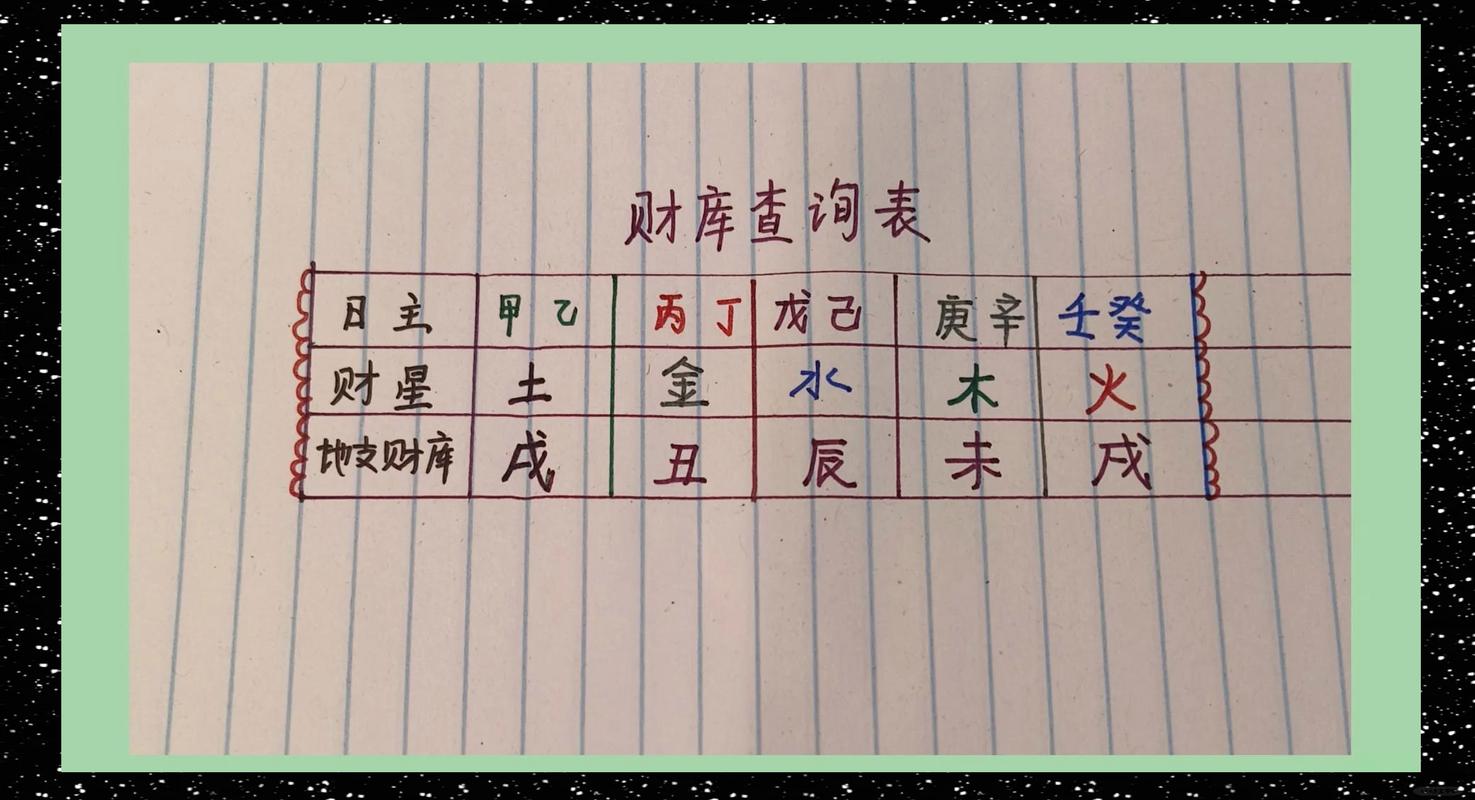 财库查询表
日主 甲乙 丙丁 戊己 庚辛 壬癸
财星 土 金 水 木 火
地支财库 戌 丑 辰 未 戌